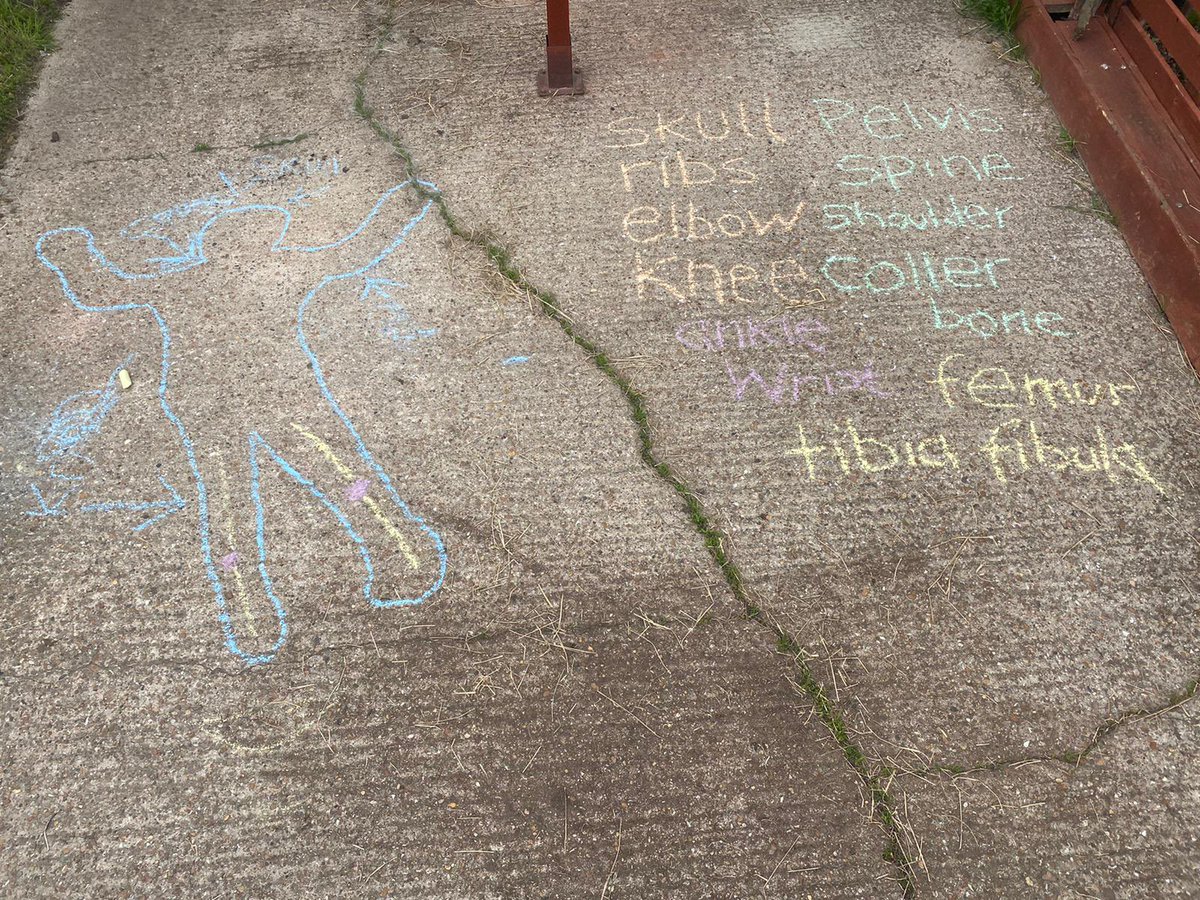 Skull
skull
ribs
elbow
Knee
ankle
Wrixt
Pelvis
spine
shoulder
Coller
bone
femur
tibia fibula